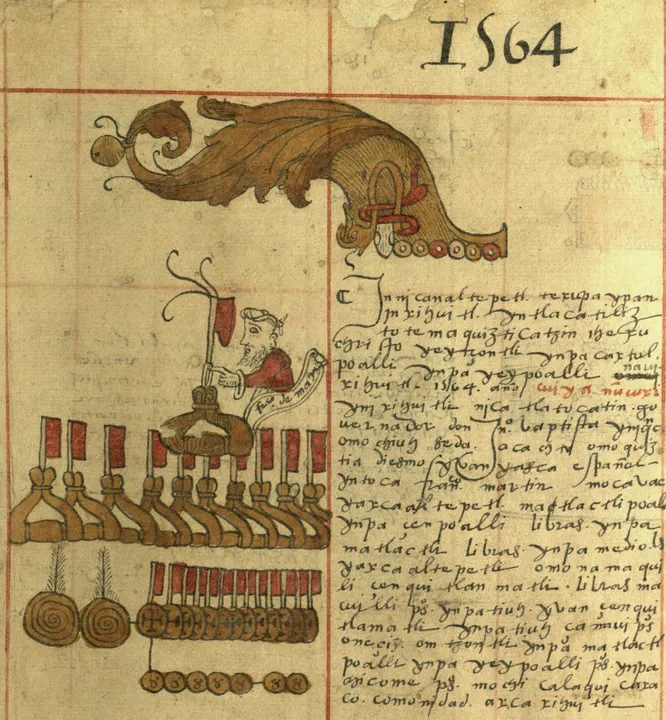 1564
frco de martin
In nican altepetl. texupa ypan
in xihuitl. yn tlacatiliz
totemaquixticatzin ihesu
christo yey tzontli ynpa caxtol
poalli ynpa yey poalli navi
xihuitl. 1564. años
yni xihuitli nica tlatocatin. go
vernador don Jno. baptista yniqc
omochiuh
tia diezmo yvan español
yntoca fran. martin mocavac
yarca altepetl. matlactli poal
ynpa cenpoalli libras ynpa
matlactli libras ynpa medio li
yarca altepetli omonamaqui
li cenquitlanmatli. libras ma
cuilli ps. ynpatiuh yvan cenqui
tlamatli ynpatiuh ca navi ps
omtzontli ynpa matlactl
poalli ynpa yey poalli ps. ynpa
chicome ps. mochi calaqui caxa
co. comonidad. arca xihuitli